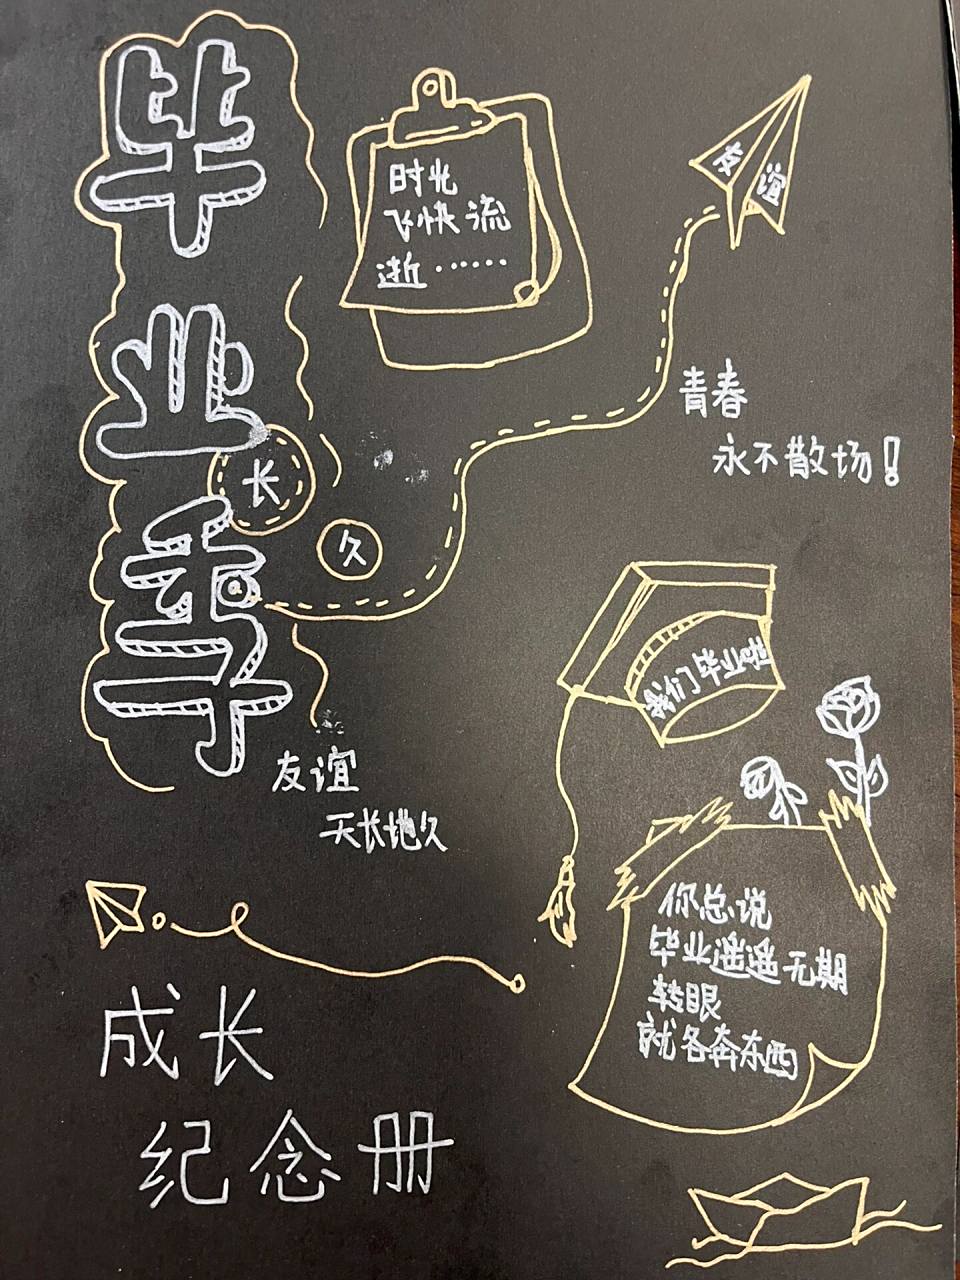 毕业季
时光
飞快流
逝……
友谊
青春
永不散场！
长
久
我们毕业啦
友谊
天长地久
你总说
毕业遥遥无期
转眼
就各奔东西
成长
纪念册